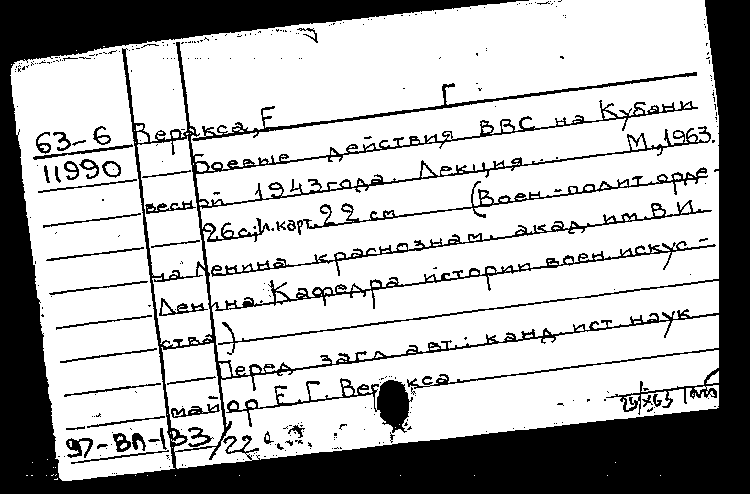 63-6 Веракса, Е Г
11990 Боевые действия ВВС на Кубани
весной 1943 года. Лекция... М., 1963.
26 с; 1 л. карт. 22 см (Воен.-полит. орде-
на Ленина краснознам. акад. им. В.И.
Ленина. Кафедра истории воен. искус-
ства).
Перед загл. авт.: канд. ист. наук
майор Е.Г. Веракса.
97-ВЛ-133/22